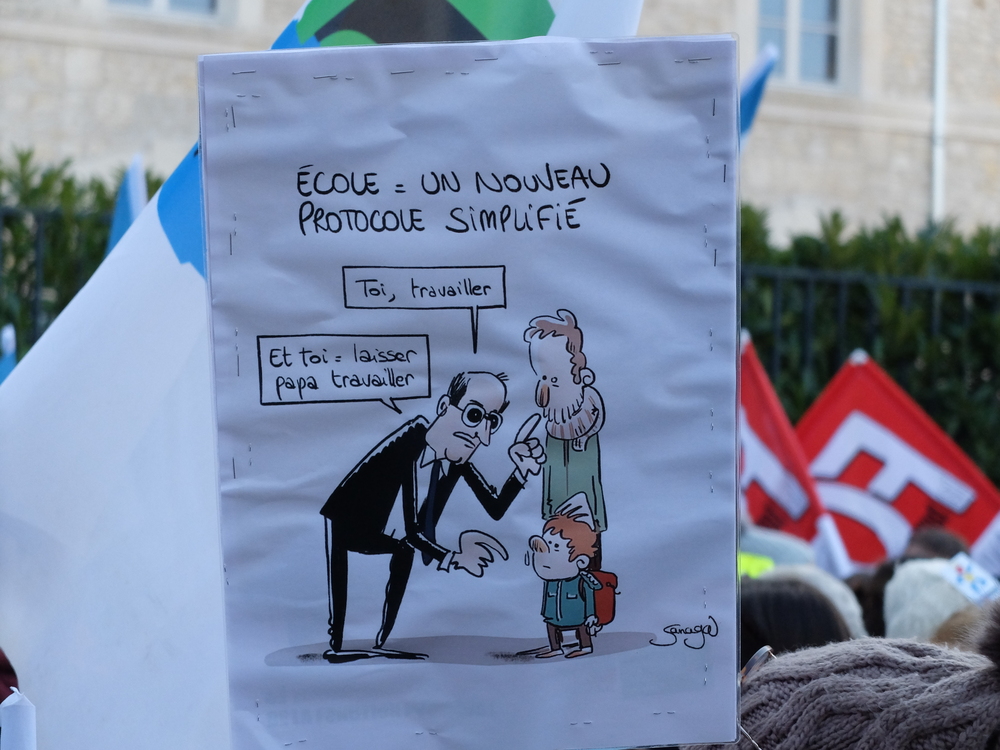 ÉCOLE = UN NOUVEAU
PROTOCOLE SIMPLIFIÉ
Toi, travailler
Et toi = laisser
papa travailler
Sanaga